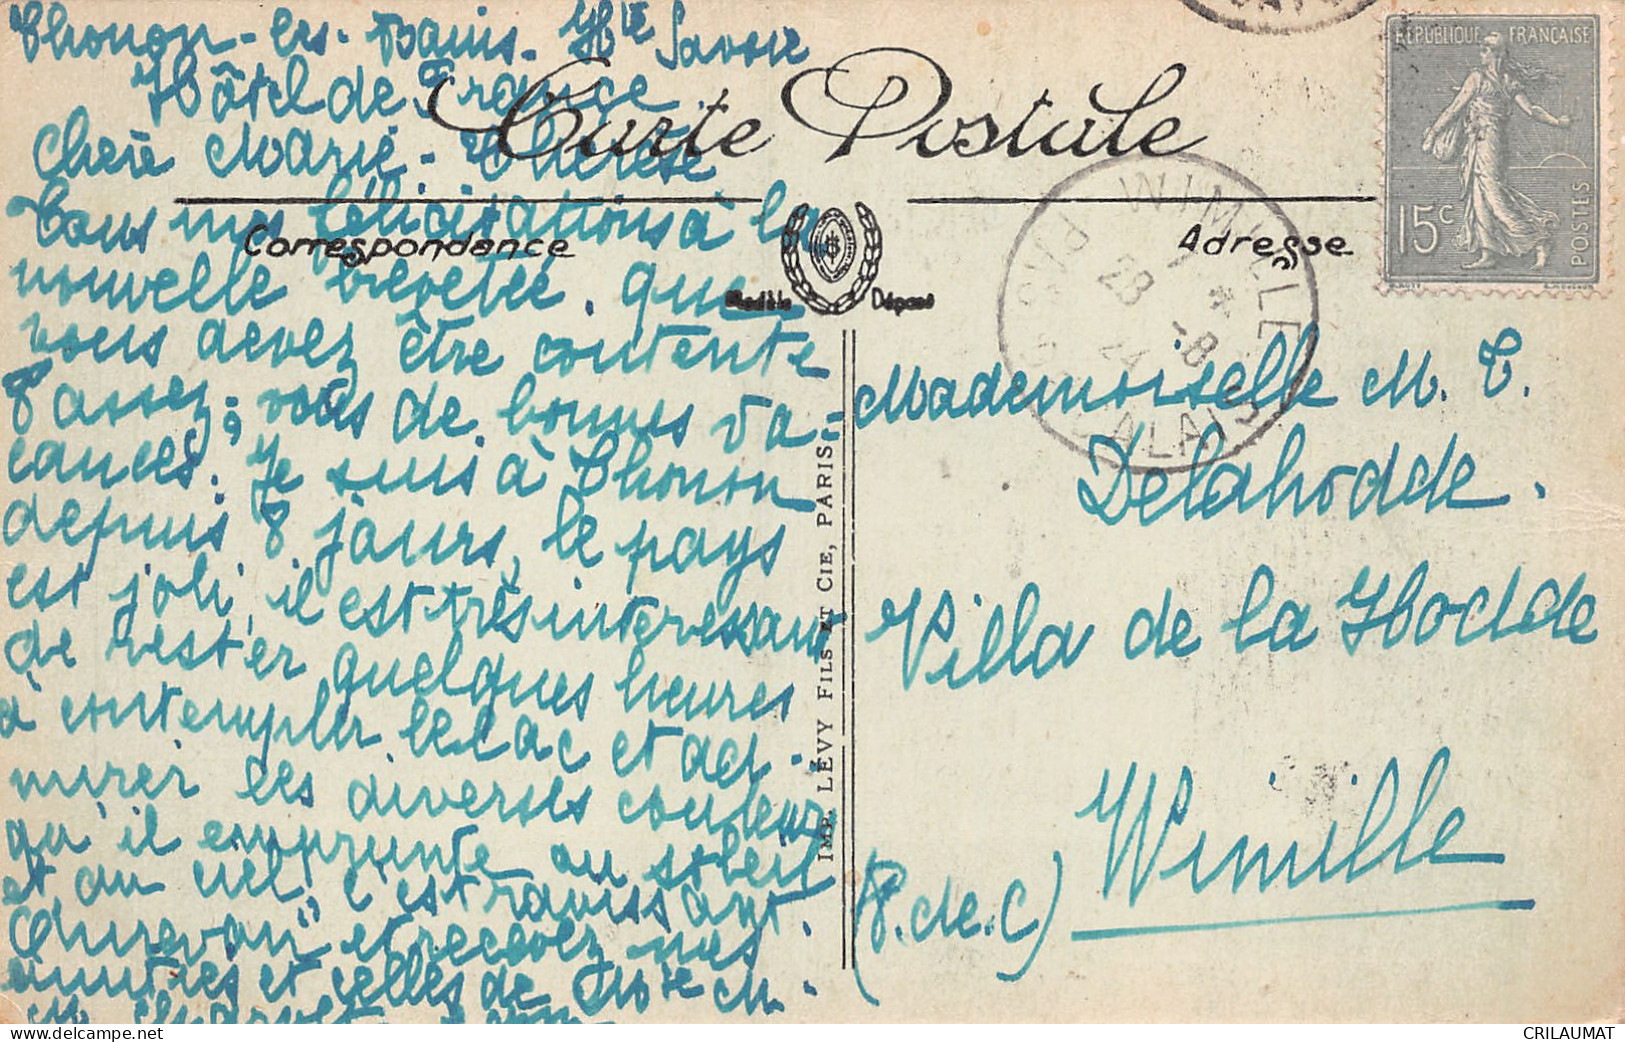 Thonon-les-Bains - Hte Savoie
Hôtel de France.
Chère Marie-Thérèse
Tous mes félicitations à la
nouvelle brevetée. que
vous devez être contente
Passez-vous de bonnes va-
cances. Je suis à Thonon
depuis 8 jours, le pays
est joli, il est très intéressant
de rester quelques heures
à contempler le lac et ad-
mirer les diverses couleurs
qu'il emprunte au soleil
et au ciel "c'est ravissant.
Au revoir" et recevez mes
amitiés et celles de M.
Carte Postale
Correspondance
Adresse
Modèle Déposé
RÉPUBLIQUE FRANÇAISE
15c
POSTES
WIMILLE
PAS DE CALAIS
7 *
28 -8
24
Mademoiselle M. T.
Delahodde.
Villa de la Hodde
Wimille
(P. de. C)
IMP. LÉVY FILS ET CIE, PARIS.
CRILAUMAT